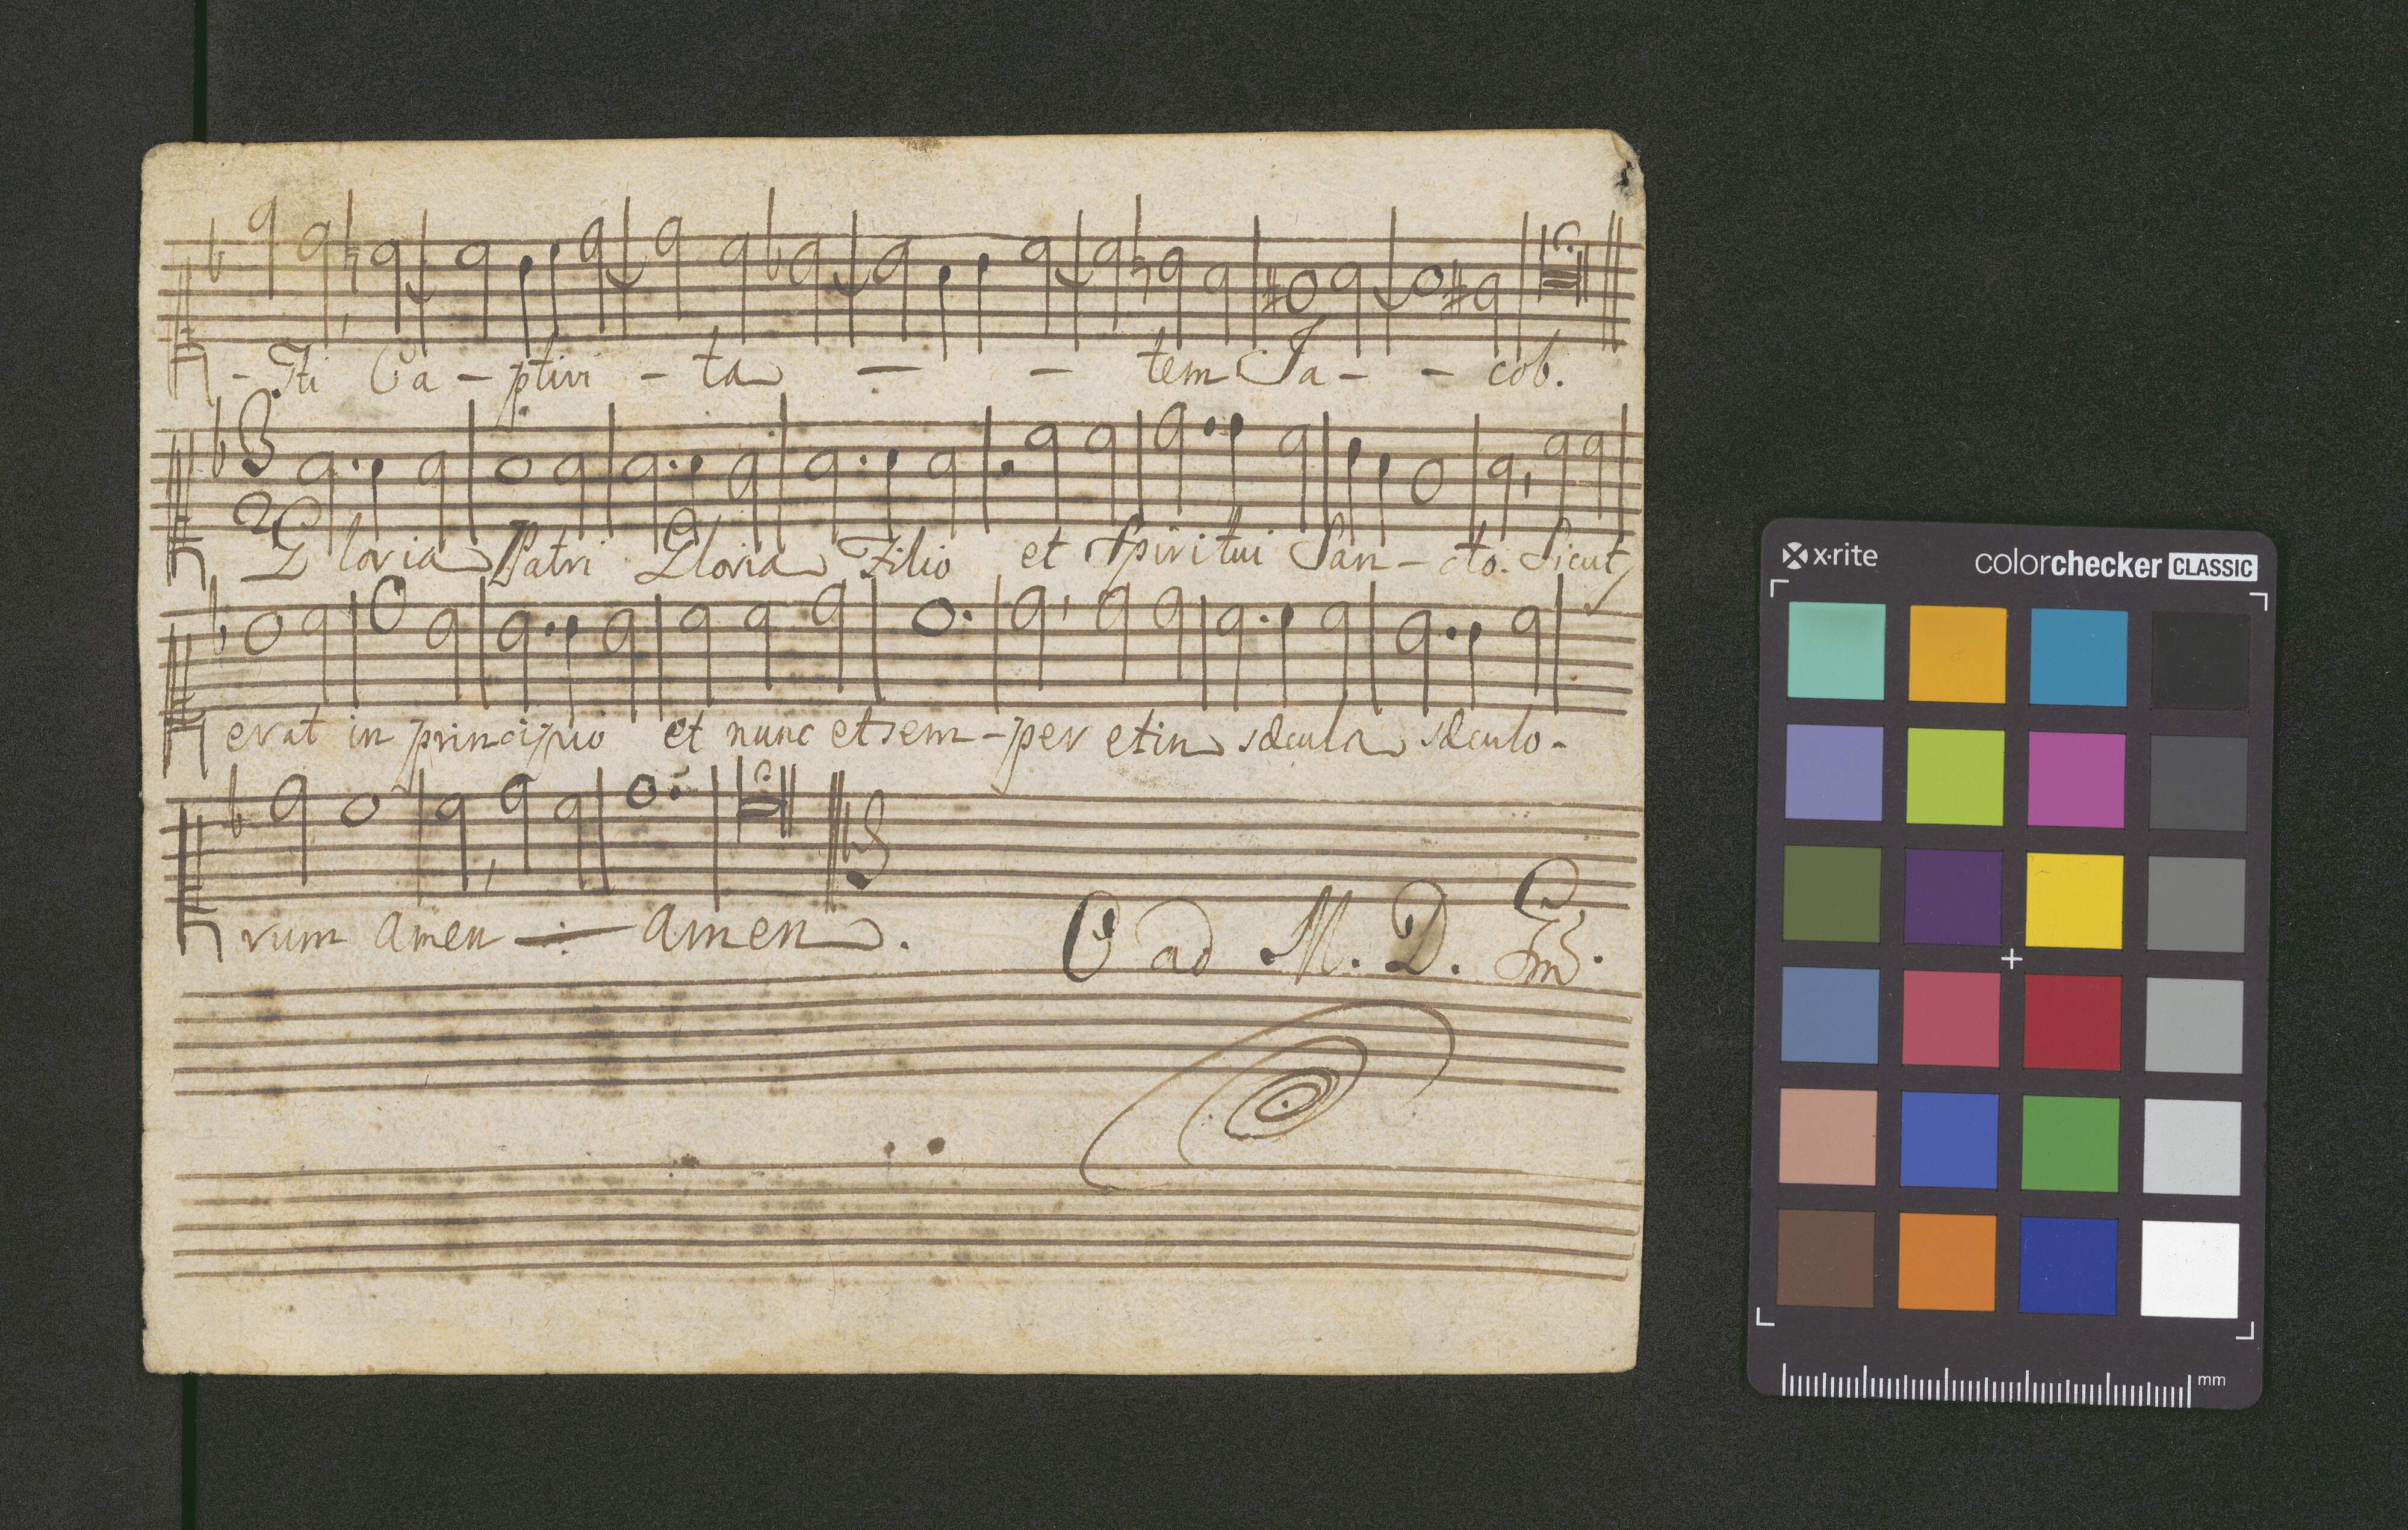 - sti Ca - ptivi - ta - - tem Ja - - cob.
3
2
Gloria Patri Gloria Filio et Spiritui San - cto. Sicut
erat in principio et nunc et sem - per et in sæcula sæculo -
rum amen — amen.
O ad M. D. G.
x-rite colorchecker CLASSIC
mm